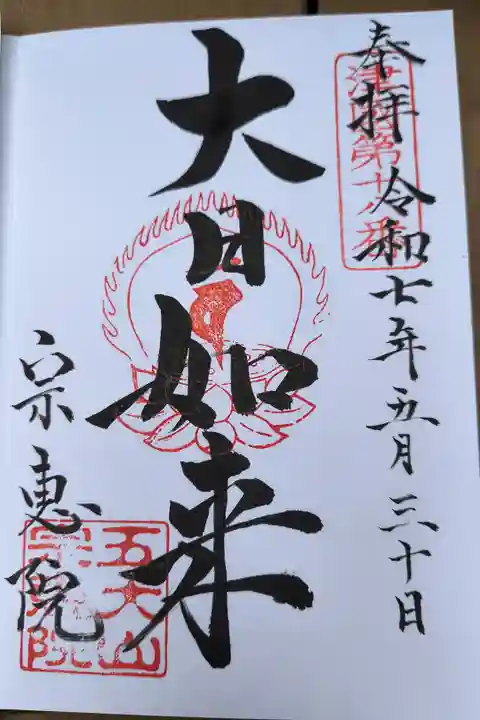 奉拝 令和七年五月三十日
大日如来
宗恵院
五大山
宗恵院